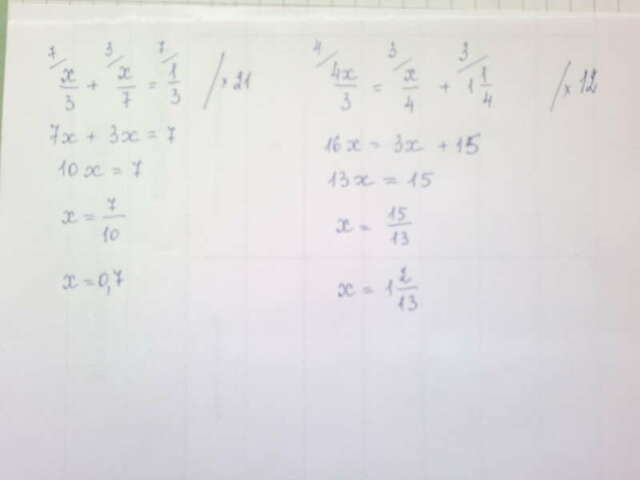 7/ x/3 + 3/ x/7 = 7/ 1/3 / × 21
7x + 3x = 7
10x = 7
x = 7/10
x = 0,7
4/ 4x/3 = 3/ x/4 + 3/ 1 1/4 / × 12
16x = 3x + 15
13x = 15
x = 15/13
x = 1 2/13